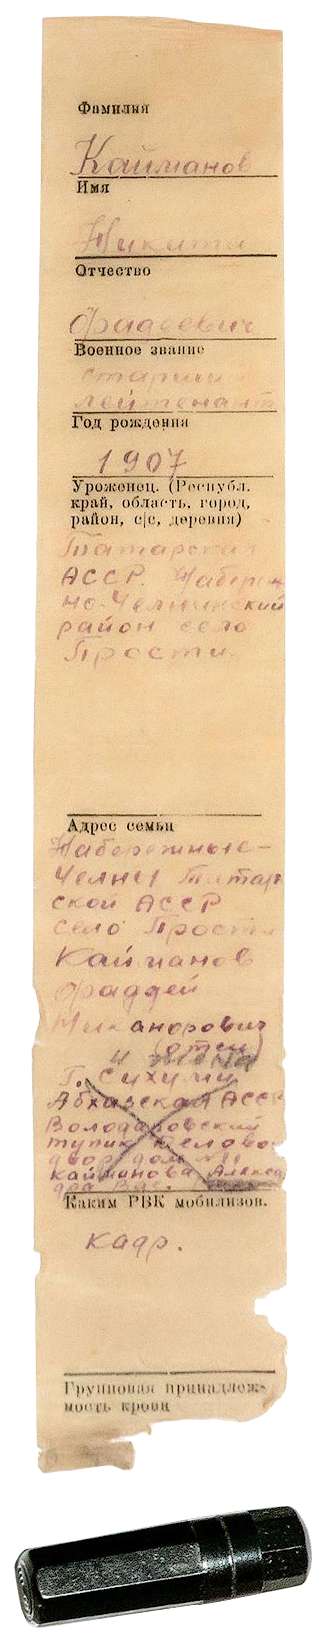 Фамилия
Кайманов
Имя
Никита
Отчество
Фадеевич
Военное звание
старший
лейтенант
Год рождения
1907
Уроженец. (Республ.
край, область, город,
район, с|с, деревня)
Татарская
АССР. Набереж
но-Челнинский
район село
Прости.
Адрес семьи
Набережные-
Челны Татар
ской АССР
село Прости
Кайманов
Фаддей
Никанорович
(отец)
и жена
Г. Сухуми
Абхазская АССР
Володаровский
тупик Деловой
двор дом
Кайманова Алексан
дра Вас.
Каким РВК мобилизов.
кадр.
Групповая принадлеж-
ность крови